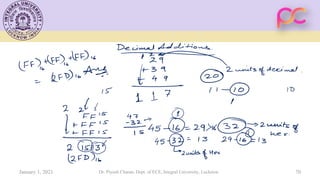 Decimal Additions.
(FF)16+(FF)16+(FF)16 Ans
= (2FD)16
1 2
29
+39
+49
117
20 2 units of decimal.
11-10 10
1
15
2 2
FF 15
+FF 15
+FF 15
2 15 13
(2FD)16
47
-32
15
45-16=29>16
45-32=13
2 units of Hex
32 2 units of Hex.
29-16=13
January 1, 2021 Dr. Piyush Charan, Dept. of ECE, Integral University, Lucknow 70